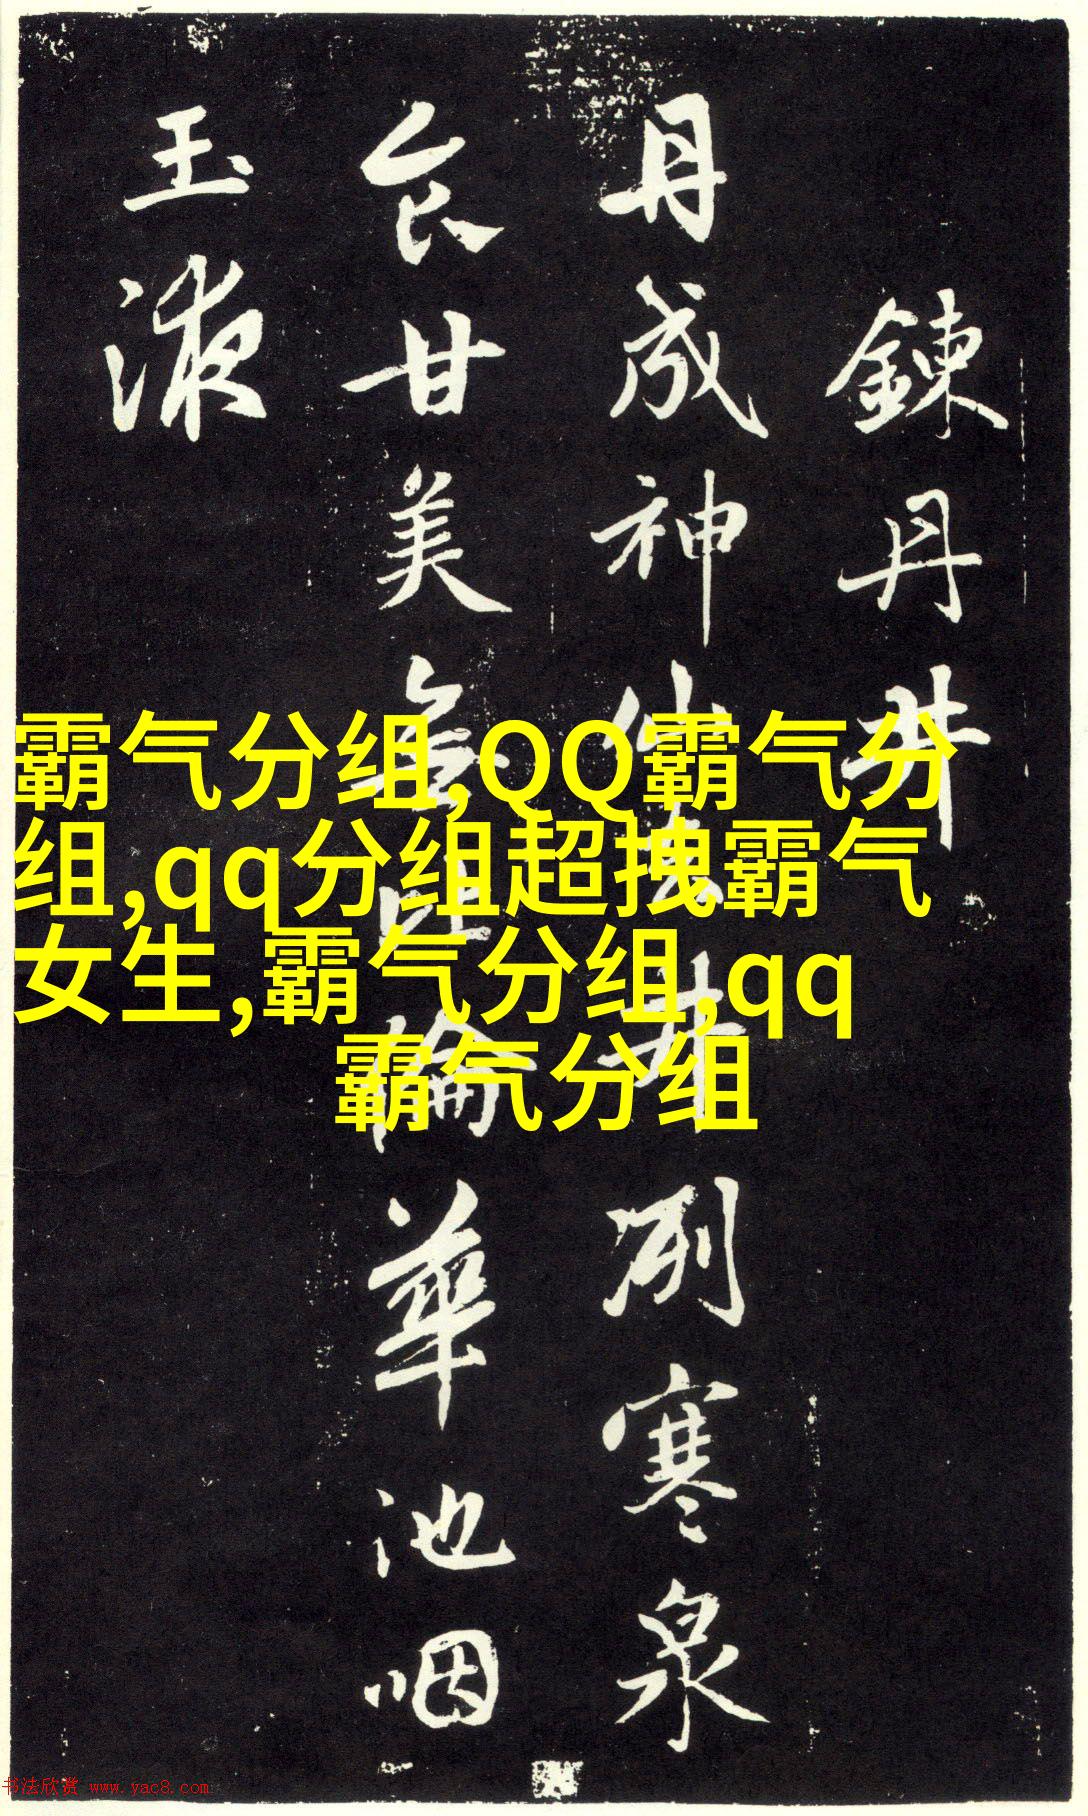 鍊丹井
丹成神仙去井冽寒泉
食甘美無比倫華池咽
玉液
霸气分组,QQ霸气分
组,qq分组超拽霸气
女生,霸气分组,qq
霸气分组
书法欣赏 www.yac8.com